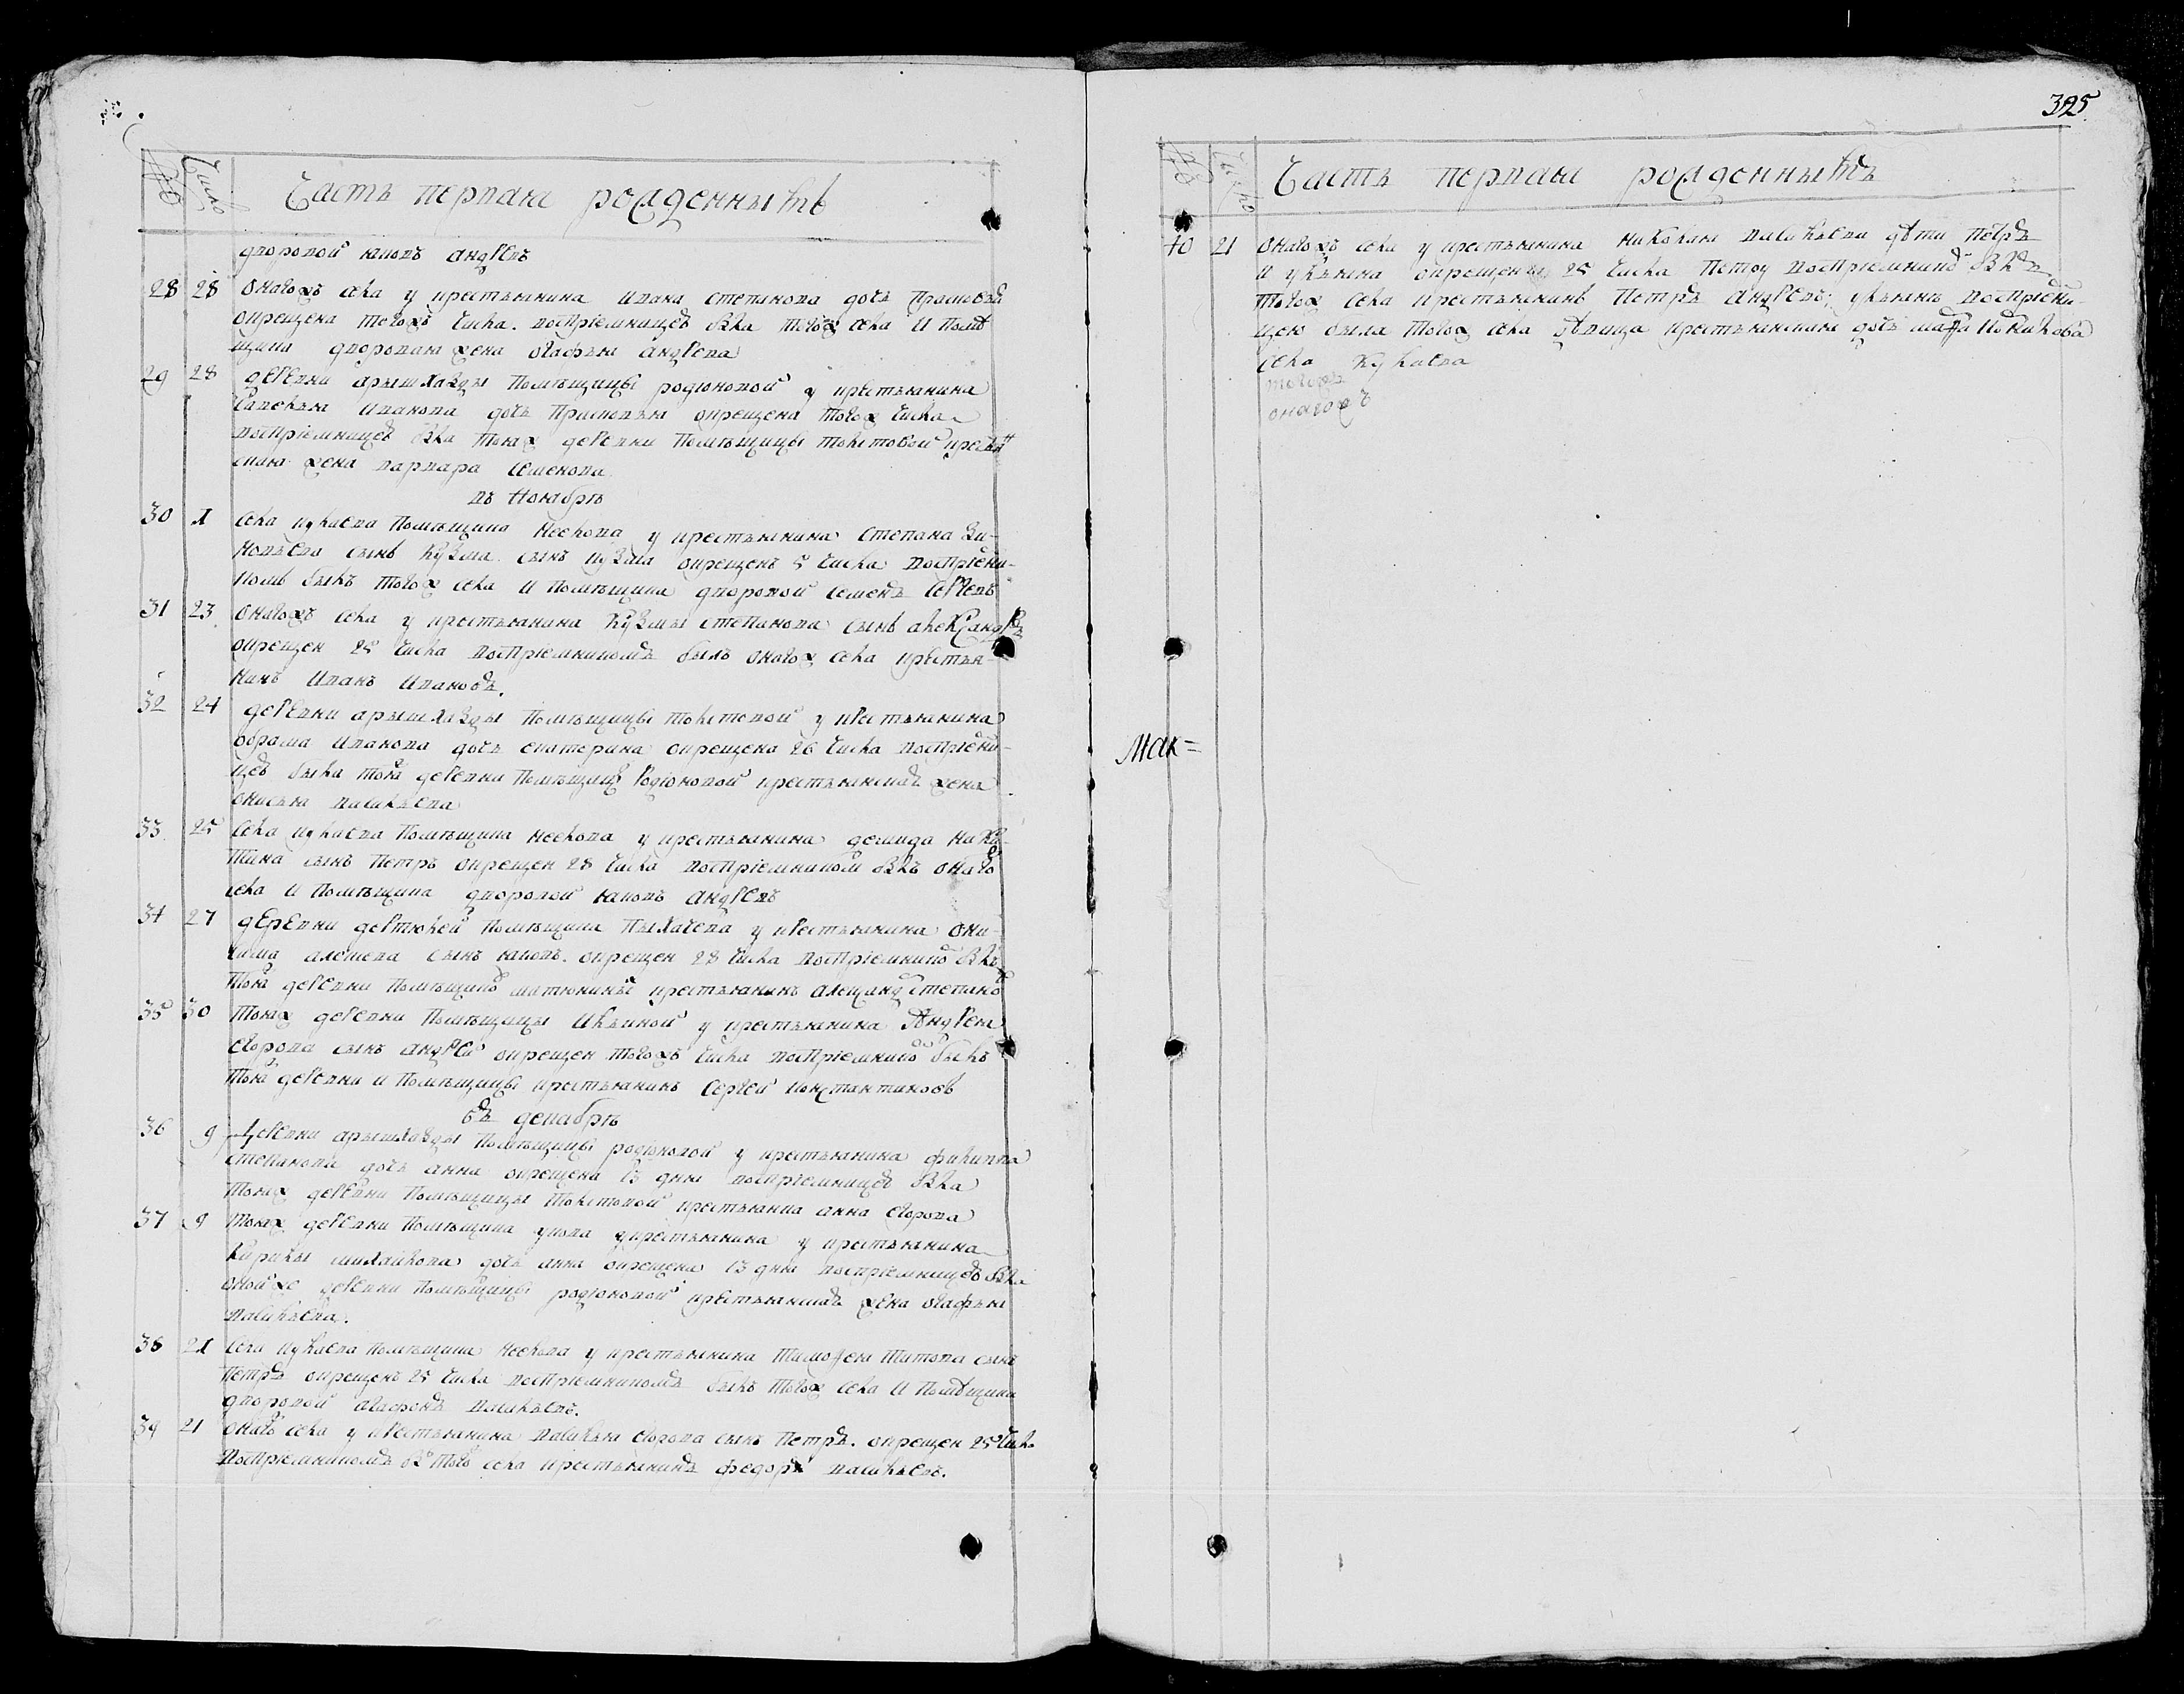 № Число Часть первая рожденныхъ
дворовой яковъ андреевъ
28 28 оногожъ села у крестьянина ивана степанова дочь прасковья
окрещена тогожъ числа. восприемницей была тогож села и помѣ
щика дворовая жена агафья андреева
29 28 деревни арышхазды помѣщицы родионовой у крестьянина
савелья иванова дочь прасковья окрещена тогож числа
восприемницей была тояж деревни помѣщицы толстовой кресть
жена варвара семенова
въ ноябрѣ
30 1 села куклаева помѣщика неелова у крестьянина степана зи-
новьева сынъ кузма. сынъ кузма окрещенъ 5 числа восприемни-
комъ былъ тогож села и помѣщика дворовой семенъ
31 23 оногожъ села у крестьянина кузмы степанова сынъ александръ
окрещен 25 числа восприемникомъ былъ оногож села крестья-
нинъ иванъ ивановъ.
32 24 деревни арышхазды помѣщицы толстовой у крестьянина
абрама иванова дочь екатерина окрещена 26 числа восприемни-
цей была тояж деревни помѣщицы родионовой крестьянская жена
анисья васильева
33 25 села куклаева помѣщика неелова у крестьянина демида ники-
тина сынъ петръ окрещен 28 числа восприемником былъ оного
села и помѣщика дворовой яковъ андреевъ
34 27 деревни помѣщика у крестьянина они-
сима сынъ яковъ. окрещен 28 числа восприемнико былъ
тояж деревни помѣщико крестьянинъ степано
35 30 тояж деревни помѣщицы ильиной у крестьянина андрея
егорова сынъ андрей окрещен тогожъ числа восприемнико былъ
тояж деревни и помѣщицы крестьянинъ сергей константиновъ
въ декабрѣ
36 9 деревни арышхазды помѣщицы родионовой у крестьянина филиппа
степанова дочь анна окрещена 13 дня восприемницей была
тояж деревни помѣщицы толстовой крестьянка анна егорова
37 9 тояж деревни помѣщика крестьянина у крестьянина
кирилы михайлова дочь анна окрещена 13 дня восприемницей была
оной же деревни помѣщицы родионовой крестьянская жена агафья
васильева.
38 21 села куклаева помѣщика неелова у крестьянина тимофея титова сынъ
петръ окрещенъ 25 числа восприемникомъ былъ тогож села и помѣщика
дворовой агафонъ васильевъ.
39 21 оногожъ села у крестьянина василья егорова сынъ петръ. окрещен 25 числа
восприемникомъ былъ того села крестьянинъ федоръ васильевъ.
325
№ число Часть первая рожденныхъ
40 21 оногожъ села у крестьянина николая васильева дѣти петръ
и ульяна окрещены 25 числа петру восприемнико былъ
тогож села крестьянинъ петръ андреевъ; ульянѣ восприемни-
цею была тогож села дѣвица крестьянская дочь
села куклаева
тогожъ
оногожъ
Мак=